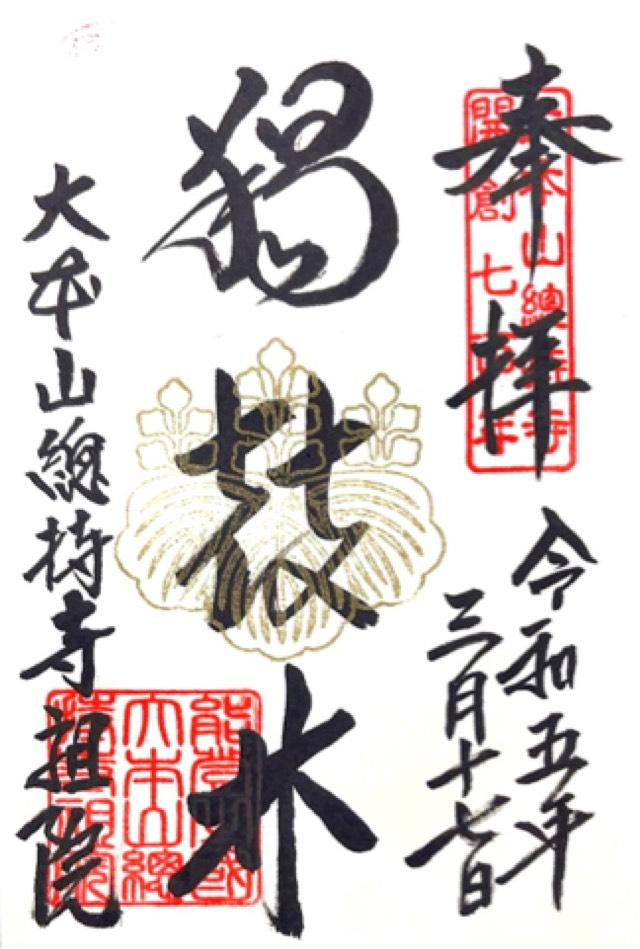 奉拝
大本山總持寺
開創七百年
令和五年
三月十七日
能登國
大本山總
持寺祖院
大本山總持寺祖院